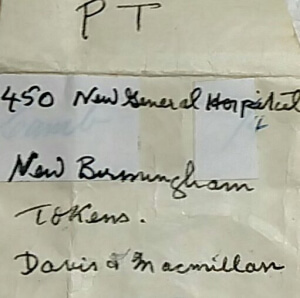 P T
450 New General Hospital
New Birmingham
Tokens.
Davis & Macmillan